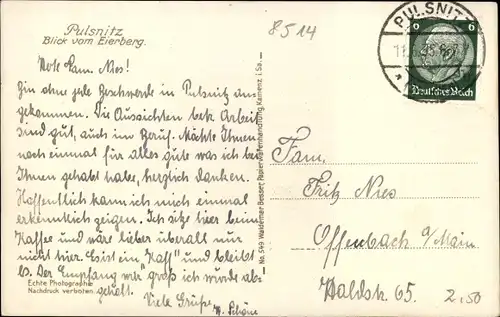 Pulsnitz
Blick vom Eierberg.
8514
PULSNITZ
6
Deutsches Reich
Wde Fam. Nies!
Bin ohne jede Beschwerde in Pulsnitz an-
gekommen. Die Aussichten betr. Arbeit
sind gut, auch im Beruf. Möchte Ihnen
noch einmal für alles gute was ich bei
Ihnen gehabt habe, herzlich danken.
Hoffentlich kann ich mich einmal
erkenntlich zeigen. Ich sitze hier beim
Kaffee und wäre lieber überall nur
nicht hier. Es ist ein "Kaff" und bleibt
es. Der Empfang war groß ich wurde ab-
geholt.
Viele Grüße
Echte Photographie
Nachdruck verboten.
No. 549 Waldemar Besser, Papierwarenhandlung, Kamenz i. Sa.
Fam.
Fritz Nies
Offenbach a/Main
Waldstr. 65.
2,50